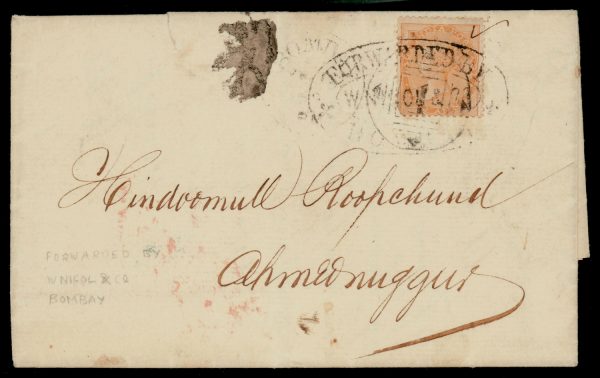 FORWARDED BY
W. NICOL & CO
BO
Hindoomull Roopchund
Ahmednuggur
FORWARDED BY
W NICOL & CO
BOMBAY